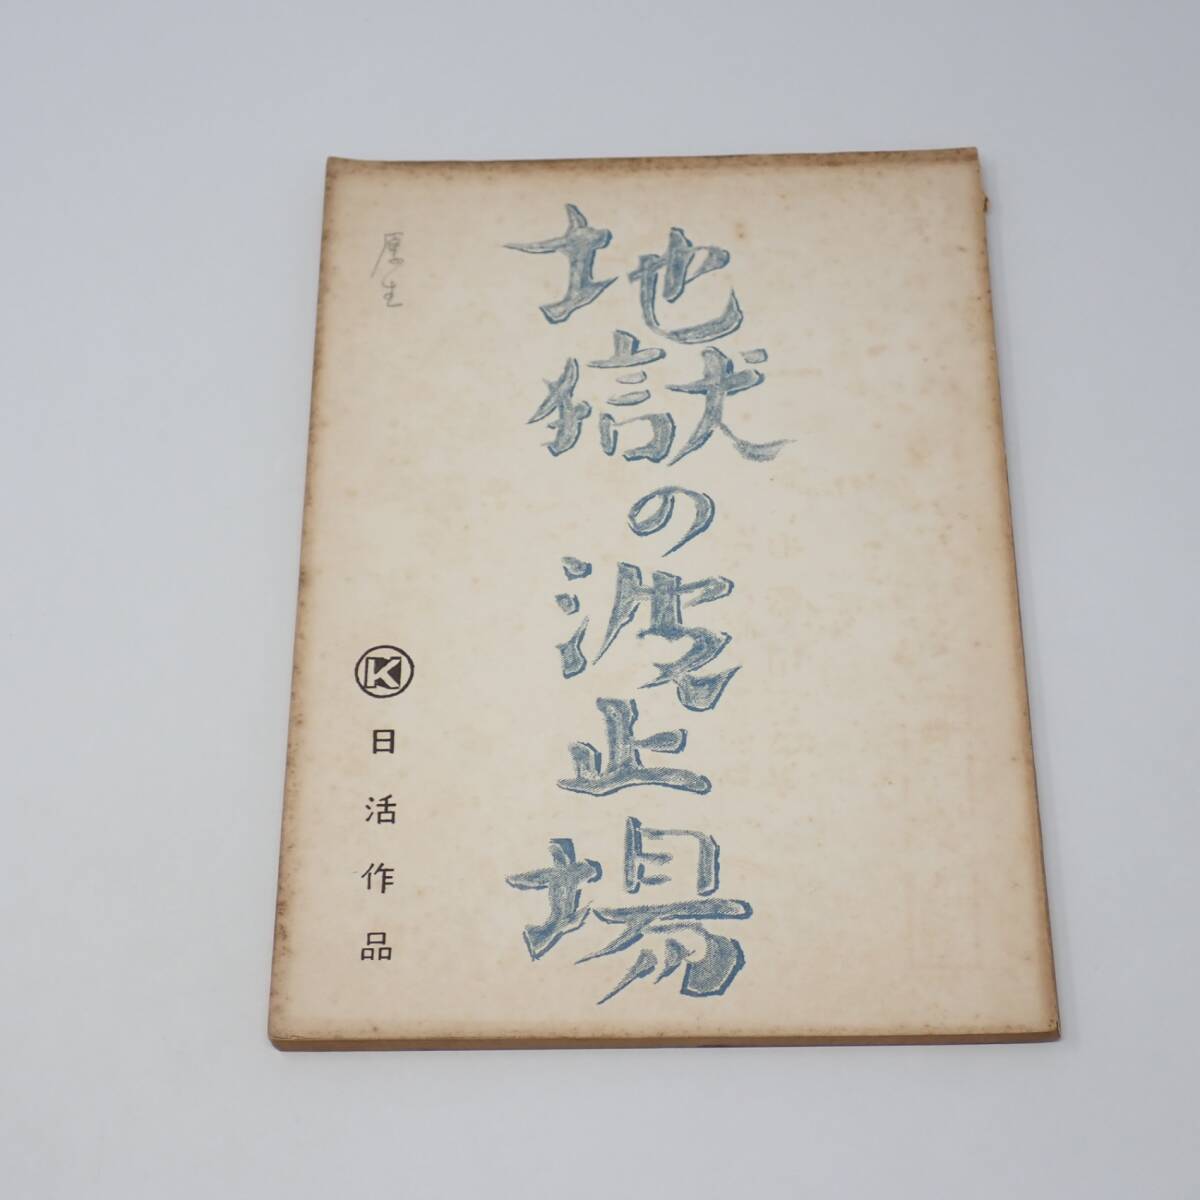 地獄の波止場
厚生
K
日活作品